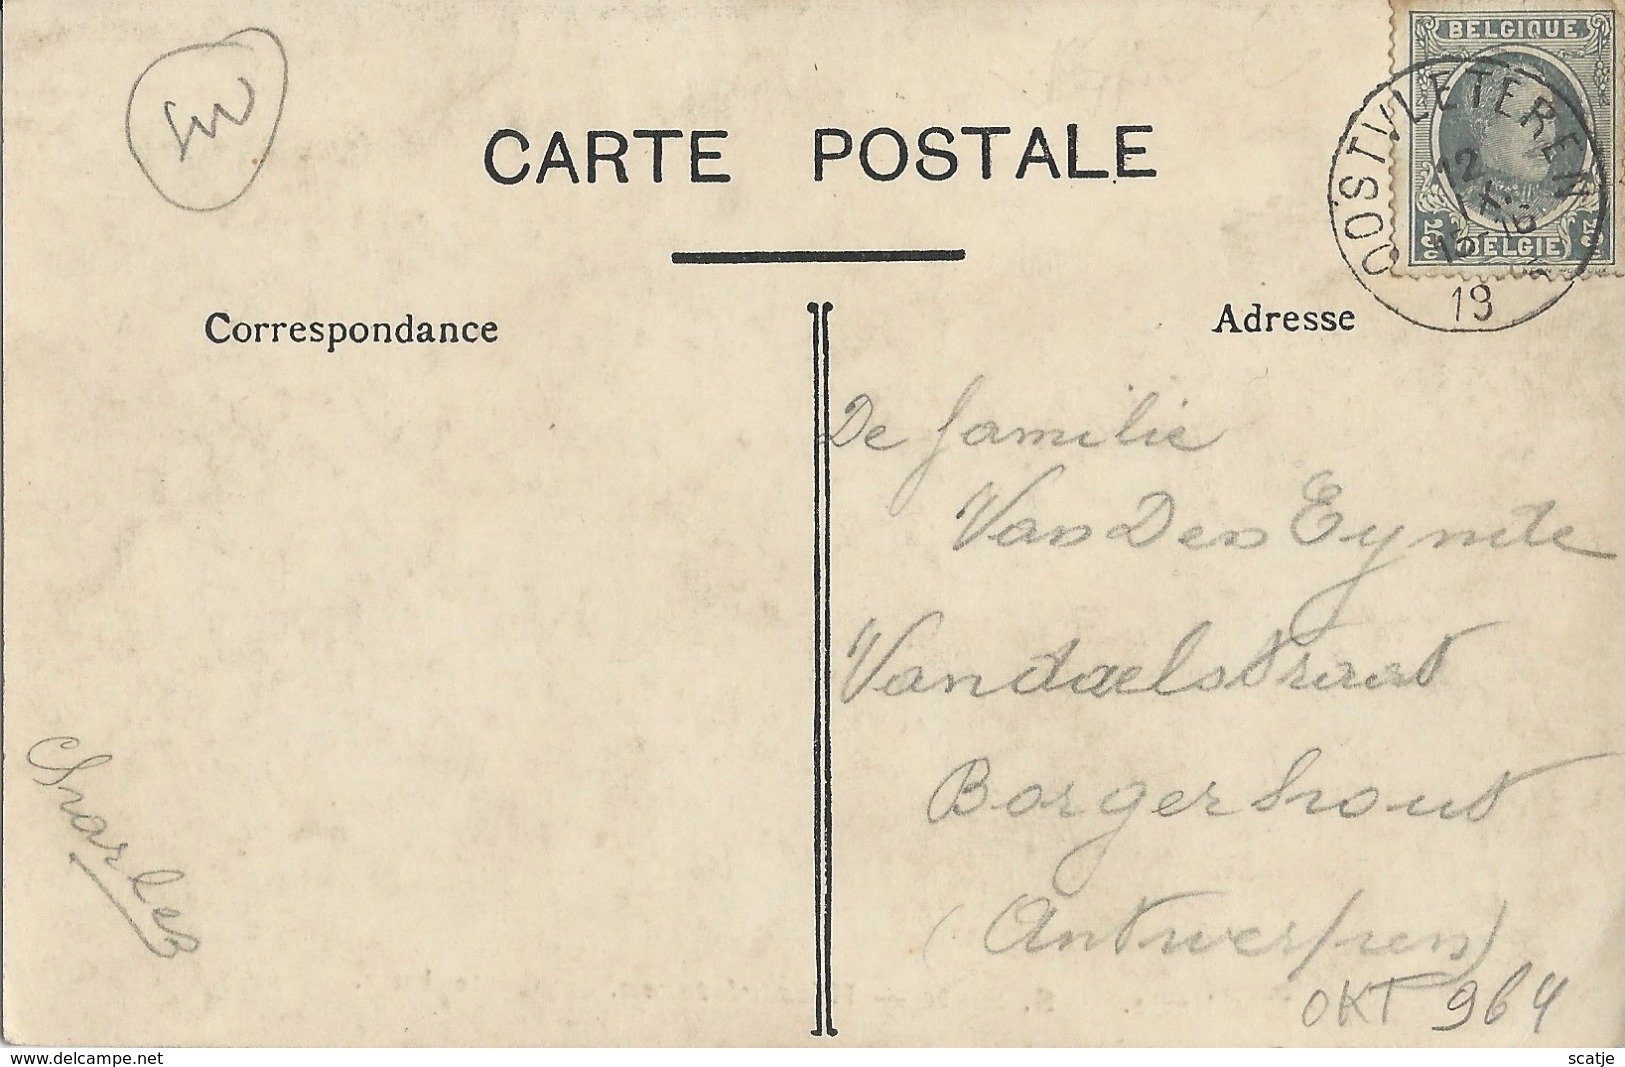 BELGIQUE
OOSTVLETEREN
12
IX
BELGIE
19
CARTE POSTALE
Correspondance
Adresse
De familie
Van Den Eynde
Vandaelstraat
Borgerhout
(Antwerpen)
Charles
OKT 964
www.delcampe.net
scatje